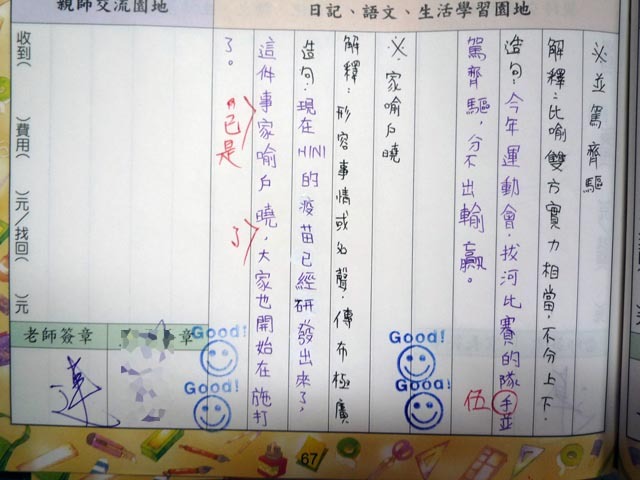 親師交流園地
日記、語文、生活學習園地
※並駕齊驅
解釋：比喻雙方實力相當，不分上下．
造句：今年運動會，拔河比賽的隊手並
伍
駕齊驅，分不出輸贏。
※．家喻戶曉
解釋：形容事情或名聲，傳布極廣
造句：現在H1N1的疫苗已經研發出來了，
這件事家喻戶曉，大家也開始在施打
已是
了
了。
收到（　）費用（　）元/找回（　）元
老師簽章
章
Good!
Good!
Good!
Good!
67